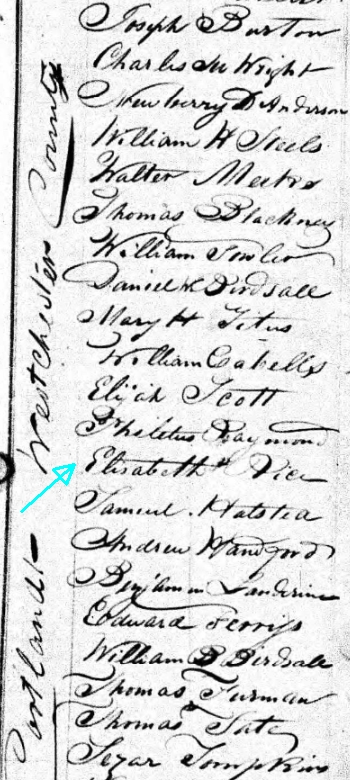 Joseph Burton
Charles M Wright
Newberry D Anderson
William H Steels
Walter Meeks
Thomas Blackney
William Fowler
Daniel K Birdsall
Mary H Titus
William Cabells
Elijah Scott
Philetus Raymond
Elisabeth Vice
Samuel Halstea
Andrew Handford
Benjamin
Edward Ferris
William D Birdsall
Thomas Furman
Thomas Tate
Sezar Tompkins
Cortland - Westchester County